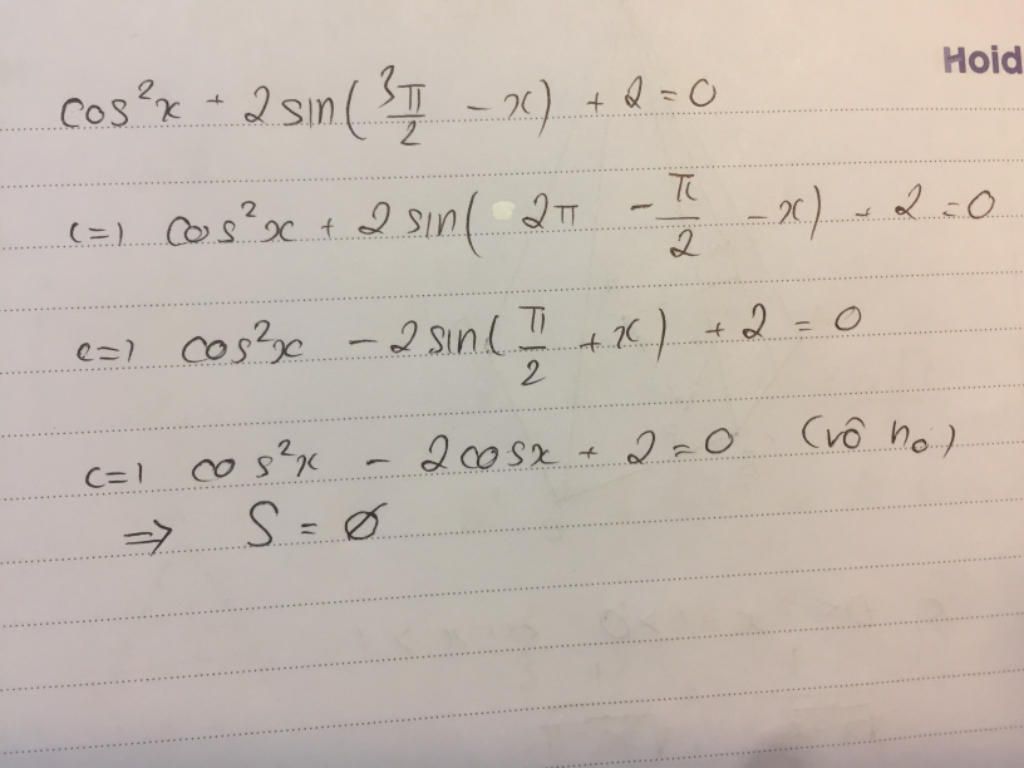 Hoid
cos²x + 2 sin(3π/2 - x) + 2 = 0
<=> cos²x + 2 sin(2π - π/2 - x) + 2 = 0
<=> cos²x - 2 sin(π/2 + x) + 2 = 0
<=> cos²x - 2 cosx + 2 = 0 (vô no)
=> S = ∅